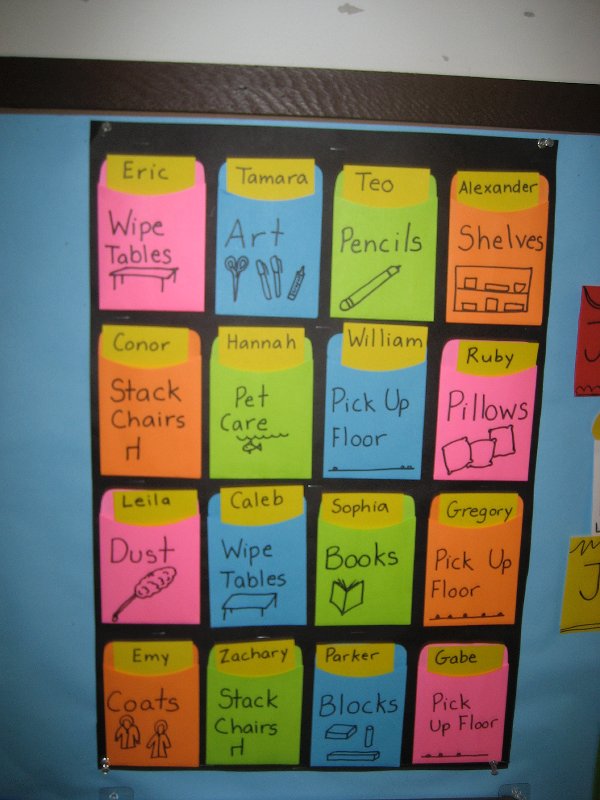 Eric
Wipe
Tables
Tamara
Art
Teo
Pencils
Alexander
Shelves
Conor
Stack
Chairs
Hannah
Pet
Care
William
Pick Up
Floor
Ruby
Pillows
Leila
Dust
Caleb
Wipe
Tables
Sophia
Books
Gregory
Pick Up
Floor
Emy
Coats
Zachary
Stack
Chairs
Parker
Blocks
Gabe
Pick
Up Floor